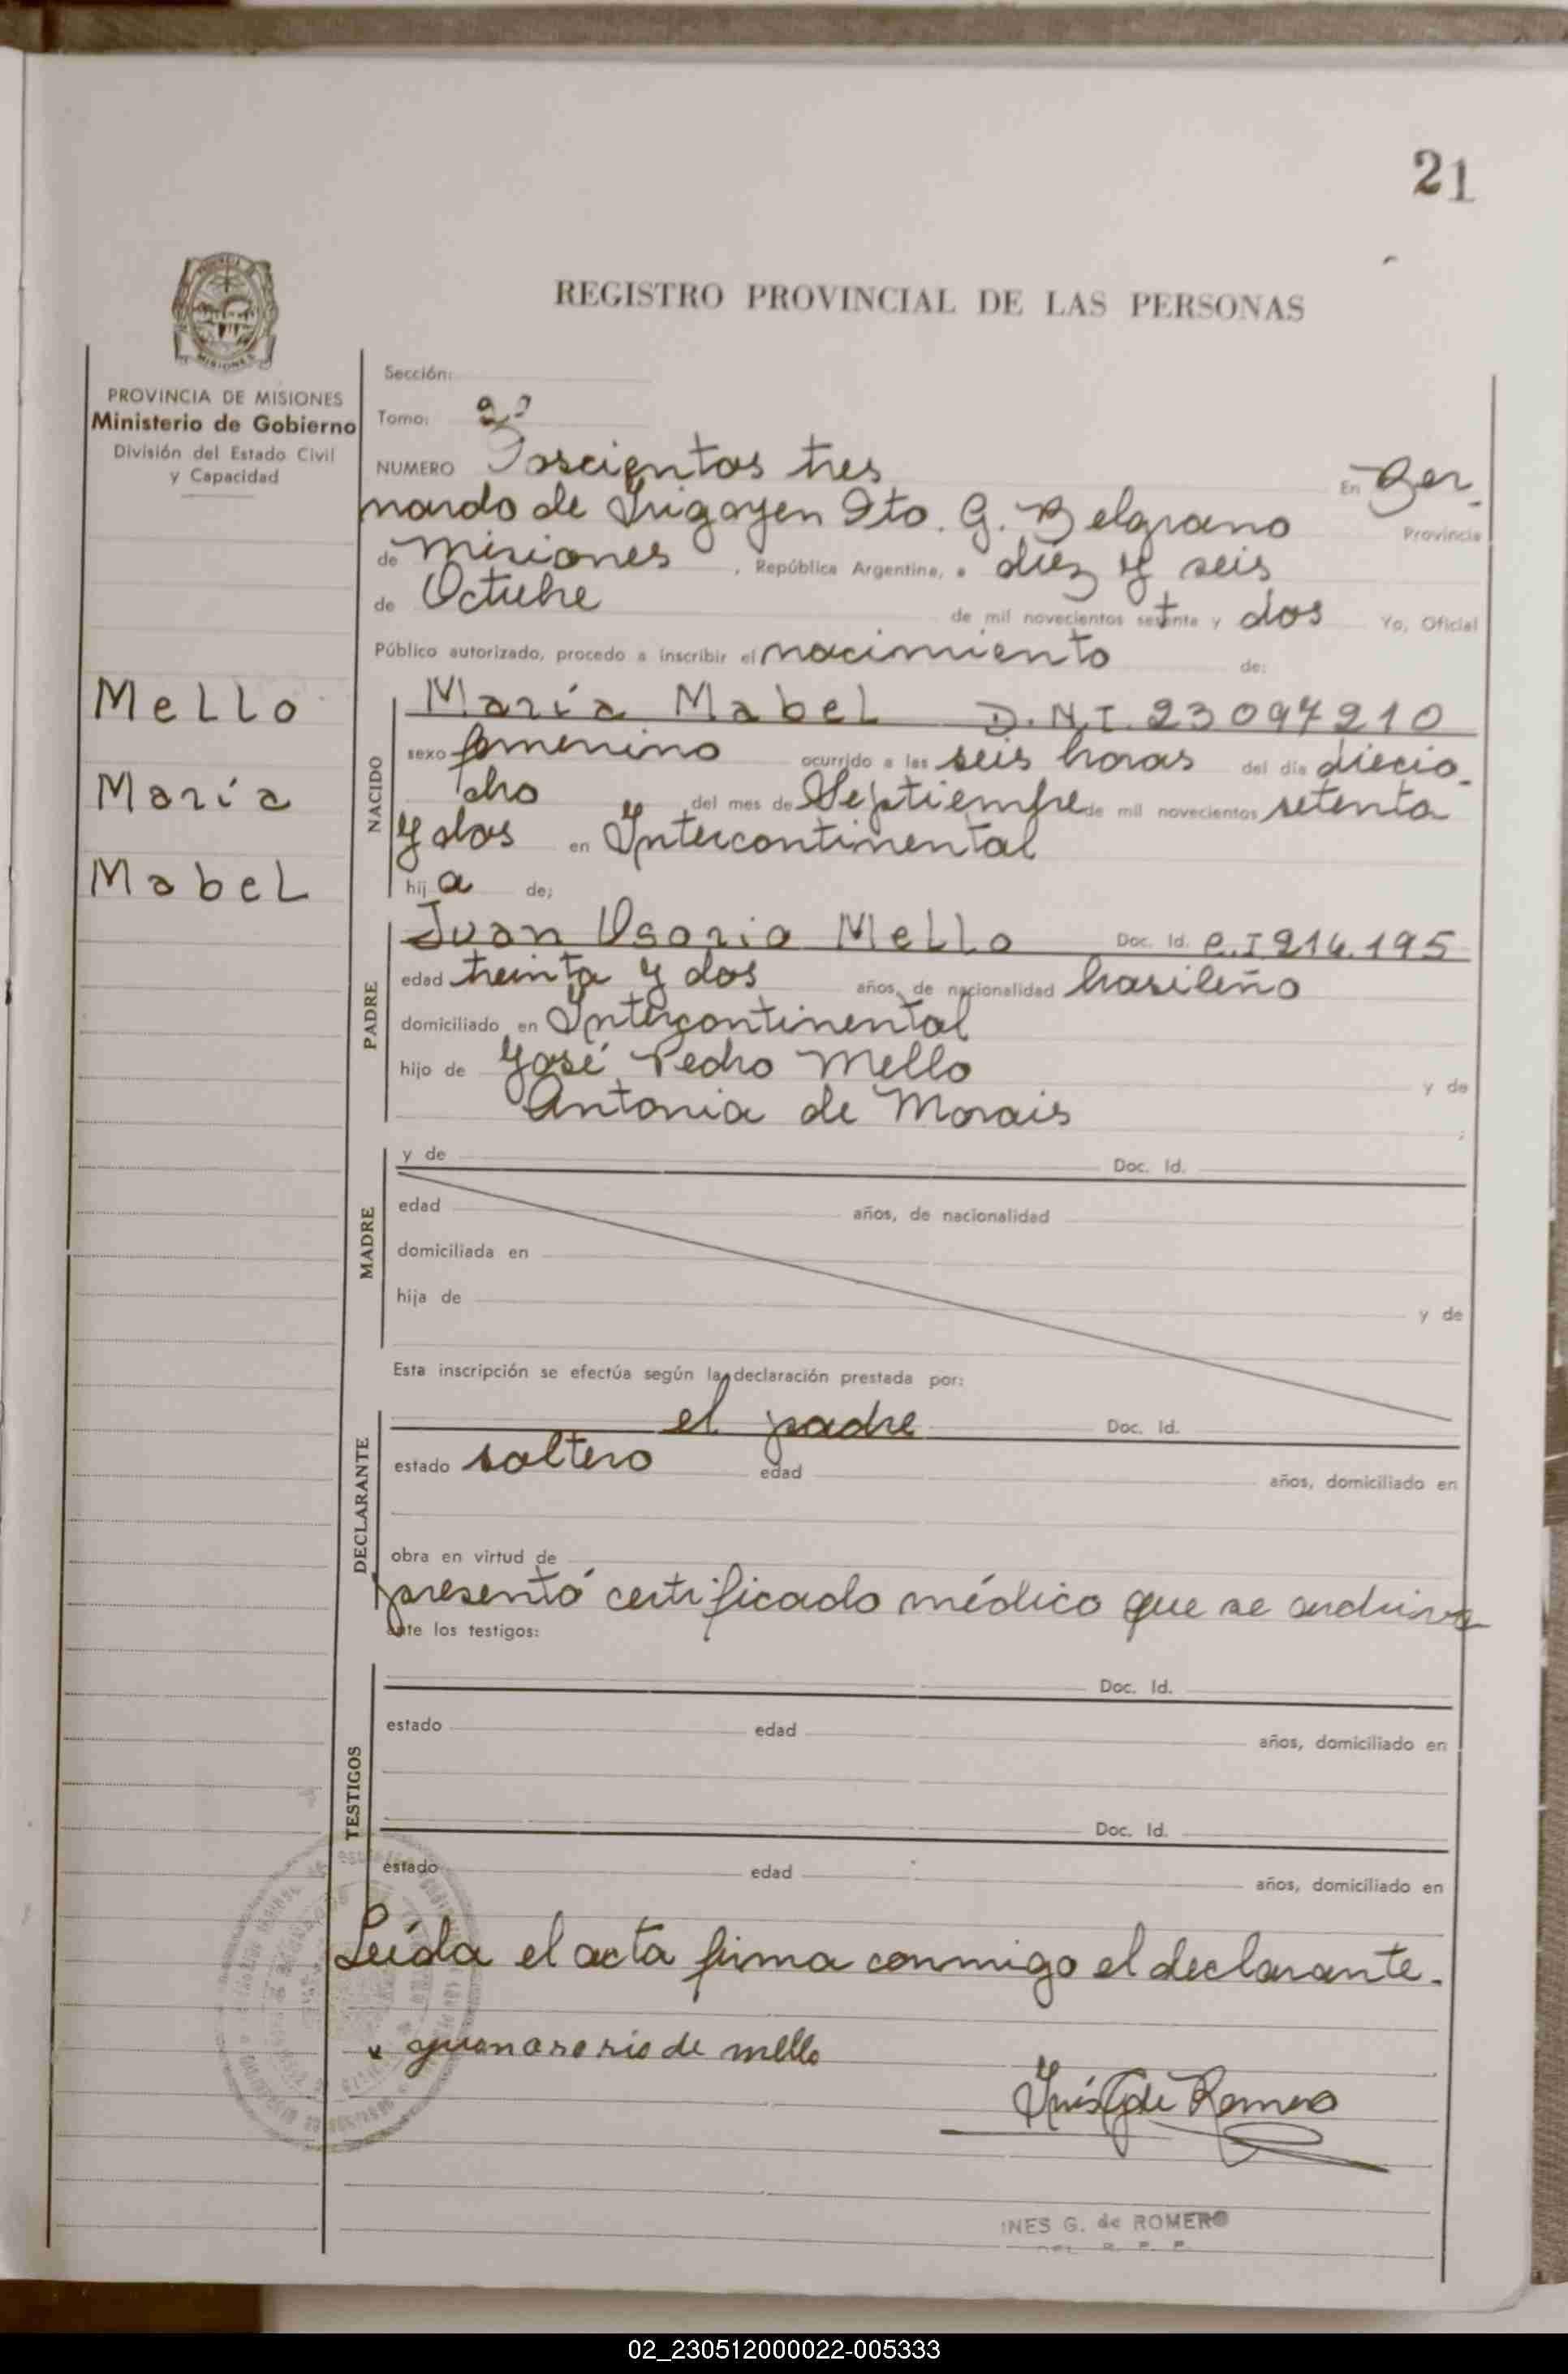 21
REGISTRO PROVINCIAL DE LAS PERSONAS
PROVINCIA DE MISIONES
Ministerio de Gobierno
División del Estado Civil
y Capacidad
Mello
María
Mabel
Sección:
Tomo: 2º
NUMERO Doscientos tres En Ber
nardo de Irigoyen Dto. G. Belgrano Provincia
de Misiones, República Argentina, a diez y seis
de Octubre de mil novecientos setenta y dos Yo, Oficial
Público autorizado, procedo a inscribir el nacimiento de:
NACIDO
María Mabel D.N.I. 23097210
sexo femenino ocurrido a las seis horas del día diecio
cho del mes de Septiembre de mil novecientos setenta
y dos en Intercontinental
hija de;
PADRE
Juan Osorio Mello Doc. Id. C.I 214.195
edad treinta y dos años, de nacionalidad brasileño
domiciliado en Intercontinental
hijo de José Pedro Mello y de
Antonia de Morais ;
MADRE
y de Doc. Id.
edad años, de nacionalidad
domiciliada en
hija de y de
Esta inscripción se efectúa según la declaración prestada por:
DECLARANTE
el padre Doc. Id.
estado soltero edad años, domiciliado en
obra en virtud de
presentó certificado médico que se archiva
ante los testigos:
TESTIGOS
Doc. Id.
estado edad años, domiciliado en
Doc. Id.
estado edad años, domiciliado en
Leída el acta firma conmigo el declarante.
x juan osorio de mello
Inés G de Romero
INES G. de ROMERO
02_230512000022-005333